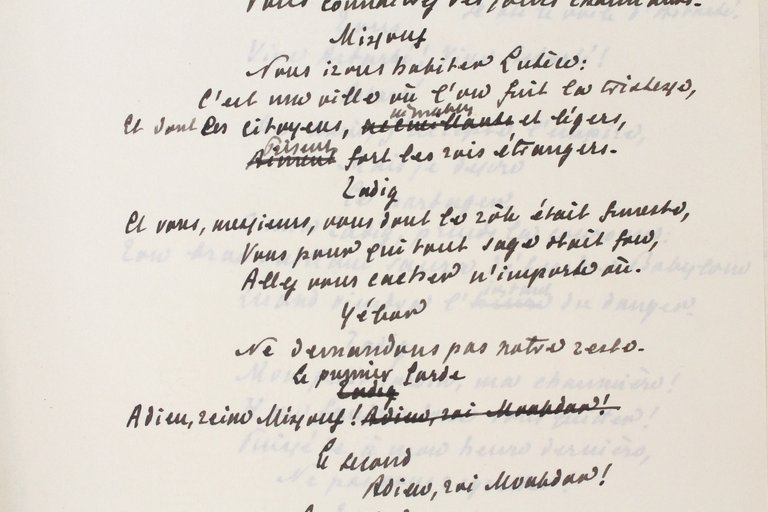 Vous connaîtrez des jours charmants.
Missouf
Nous irons habiter Lutèce:
C'est une ville où l'on fuit la tristesse,
Et dont les citoyens, accueillants et légers,
Aiment fort les rois étrangers.
Zadig
Et vous, messieurs, vous dont le rôle était funeste,
Vous pour qui tout sage était fou,
Allez vous cacher n'importe où.
Yébor
Ne demandons pas notre reste.
Le premier Garde
Zadig
Adieu, reine Missouf! Adieu, roi Moabdar!
Le second
Adieu, roi Moabdar!